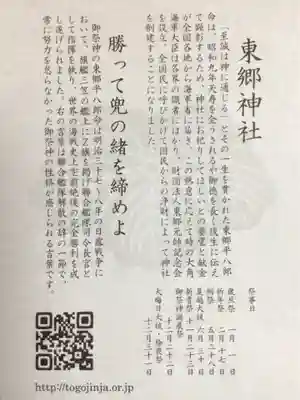 東郷神社
「至誠は神に通じる」とその一生を貫かれた東郷平八郎
命は、昭和九年天寿を全うされるや御徳を長く後生に伝え
て顕彰するため、神社にお祀りしてほしいとの要望と献金
が全国各地から海軍省に届き、この熱意に応えて時の大角
海軍大臣は各界の識者にはかり、財団法人東郷元帥記念会
を設立、全国民に呼びかけて国民からの浄財によって神社
を創建することになりました。
祭事日
歳旦祭 一月 一日
祈年祭 二月 十七日
例祭 五月二十八日
夏越大祓 六月 三十日
新嘗祭 十一月二十三日
御祭神誕辰祭
十二月二十二日
大晦日大祓・除夜祭
十二月三十一日
勝って兜の緒を締めよ
御祭神の東郷平八郎命は明治三十七・八年の日露戦争に
おいて、旗艦三笠の艦上にZ旗を掲げ聯合艦隊司令長官と
して指揮を執り、世界の海戦史上空前絶後の完全勝利を成
し遂げられました。右の言葉は聯合艦隊解散の辞の一節で、
常に努力を怠らなかった御祭神の性格が感じられる言葉です。
http://togojinja.or.jp